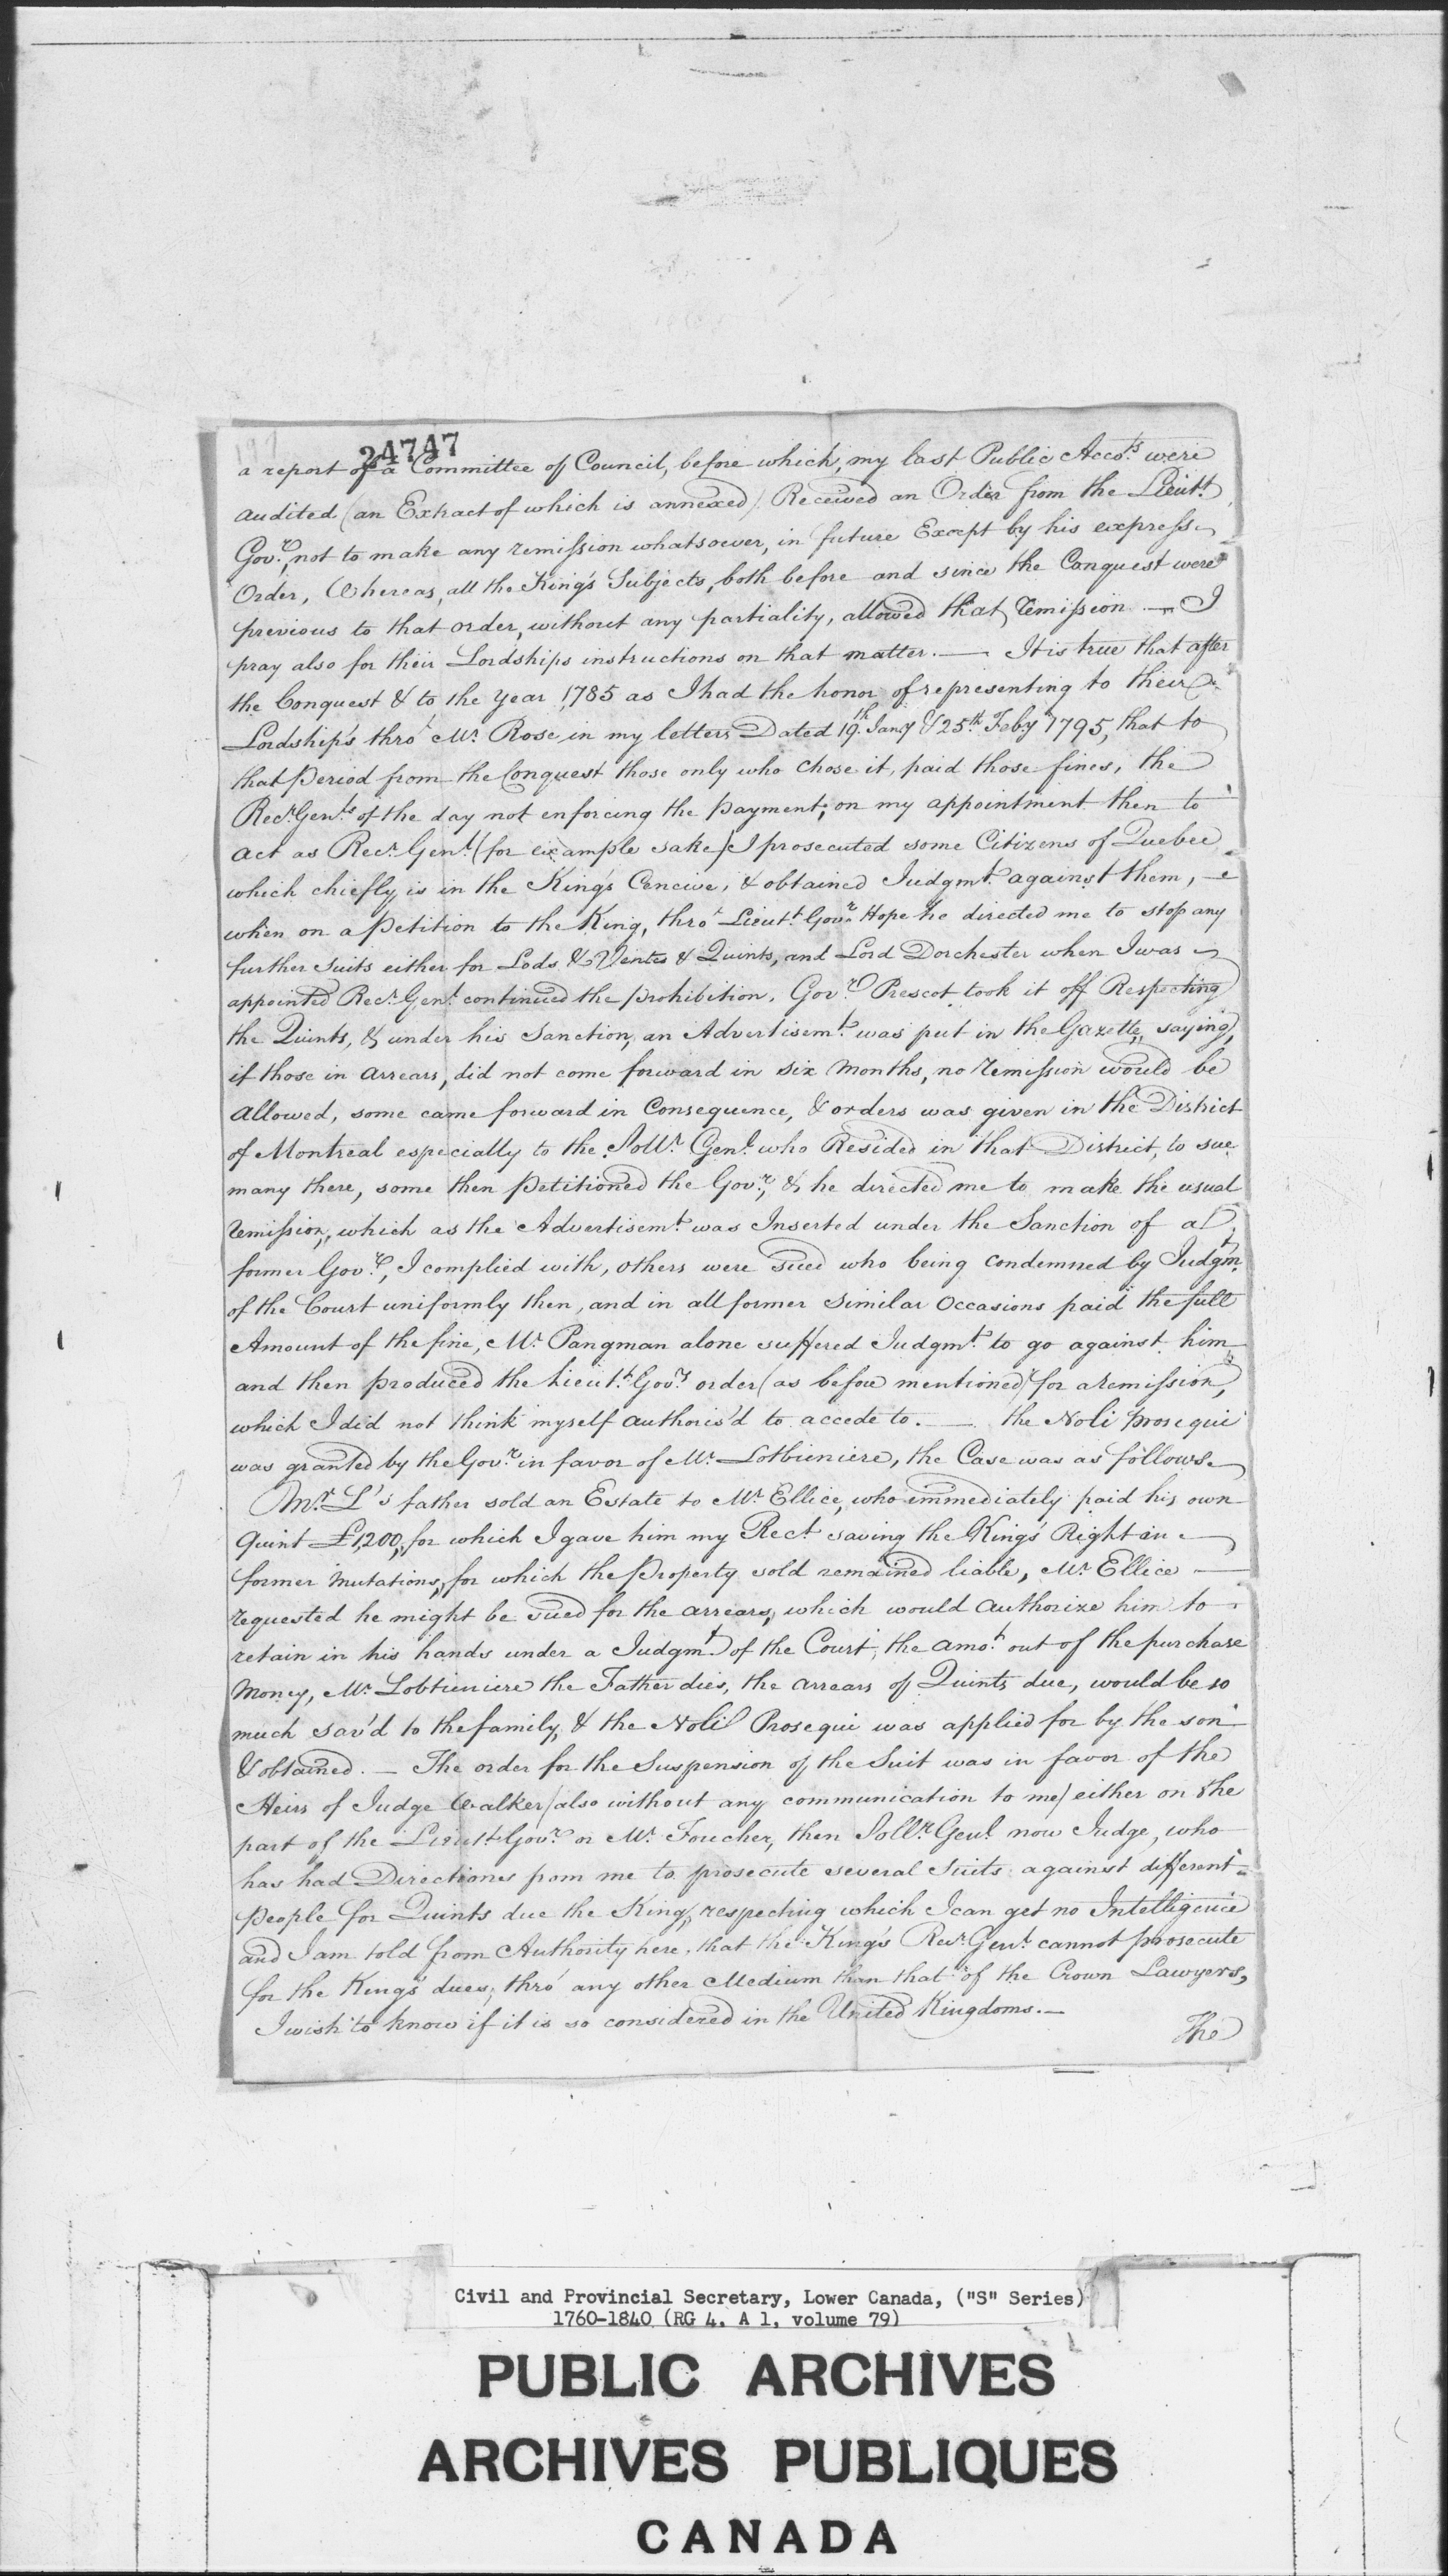 24747
a report of a Committee of Council, before which, my last Public Accots. were
audited (an Extract of which is annexed) Received an Order from the Lieutt.
Govr., not to make any remission whatsoever, in future Except by his express
Order, Whereas, all the King's Subjects, both before and since the Conquest were
previous to that order, without any partiality, allowed that remission — I
pray also for their Lordships instructions on that matter. — It is true that after
the Conquest & to the year 1785 as I had the honor of representing to their
Lordship's thro' Mr. Rose in my letters Dated 19th. Jany & 25th. Feby 1795, that to
that period from the Conquest those only who chose it, paid those fines, the
Recr. Genls. of the day not enforcing the payment; on my appointment then to
act as Recr. Genl. (for example sake) I prosecuted some Citizens of Quebec
which chiefly is in the King's Cencive, & obtained Judgmt. against them, —
when on a Petition to the King, thro' Lieutt. Govr. Hope he directed me to stop any
further suits either for Lods & Ventes & Quints, and Lord Dorchester when I was
appointed Recr. Genl. continued the prohibition. Govr. Prescot took it off Respecting
the Quints, & under his Sanction, an Advertisemt. was put in the Gazette, saying,
if those in arrears, did not come forward in six Months, no remission would be
allowed, some came forward in Consequence, & orders was given in the District
of Montreal especially to the Sollr. Genl. who Resided in that District, to sue
many there, some then petitioned the Govr., & he directed me to make the usual
remission, which as the Advertisemt. was Inserted under the Sanction of a
former Govr., I complied with, others were sued who being condemned by Judgmt.
of the Court uniformly then, and in all former similar Occasions paid the full
Amount of the fine, Mr. Pangman alone suffered Judgmt. to go against him
and then produced the Lieutt. Govrs. order (as before mentioned) for a remission,
which I did not think myself authoris'd to accede to. — the Noli prosequi
was granted by the Govr. in favor of Mr. Lotbieniere, the Case was as follows
Mr. L's father sold an Estate to Mr. Ellice, who immediately paid his own
Quint £1,200, for which I gave him my Rect. saving the King's Right in
former Mutations, for which the Property sold remained liable, Mr. Ellice —
requested he might be sued for the arrears, which would authorize him to
retain in his hands under a Judgmt. of the Court, the amot. out of the purchase
Money, Mr. Lobtieniere the Father dies, the arrears of Quints due, would be so
much sav'd to the family, & the Noli Prosequi was applied for by the son
& obtained. — The order for the Suspension of the Suit was in favor of the
Heirs of Judge Walker (also without any communication to me) either on the
part of the Lieutt. Govr. or Mr. Foucher, then Sollr. Genl. now Judge, who
has had Directions from me to prosecute several Suits against different
people for Quints due the King, respecting which I can get no Intelligence
and I am told from Authority here, that the King's Recr. Genl. cannot prosecute
for the King's dues, thro' any other Medium than that of the Crown Lawyers,
I wish to know if it is so considered in the United Kingdoms. —
The
Civil and Provincial Secretary, Lower Canada, ("S" Series)
1760-1840 (RG 4, A 1, volume 79)
PUBLIC ARCHIVES
ARCHIVES PUBLIQUES
CANADA